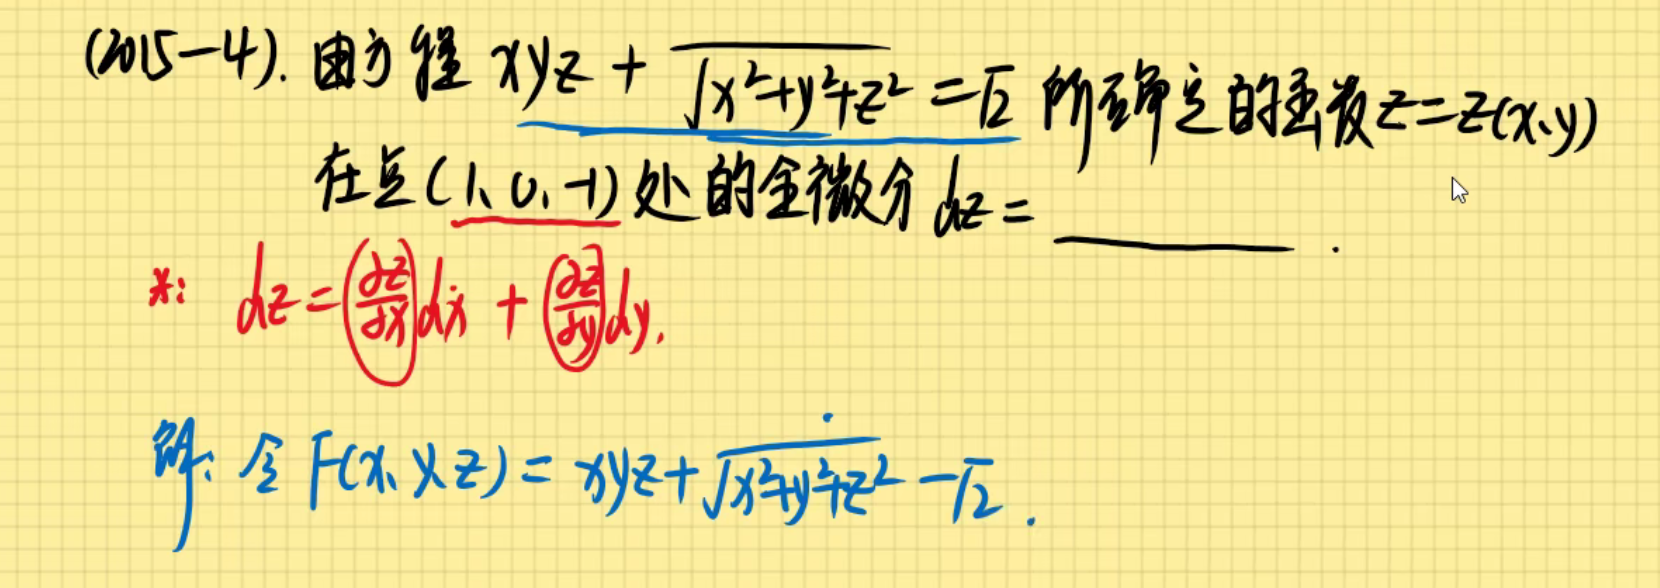 (2015-4). 由方程 xyz + √x²+y²+z² = √2 所确定的函数 z=z(x、y)
在点(1、0、-1)处的全微分 dz= ______ .
*: dz = ∂z/∂x dx + ∂z/∂y dy.
解: 令 F(x、y、z) = xyz + √x²+y²+z² - √2 .